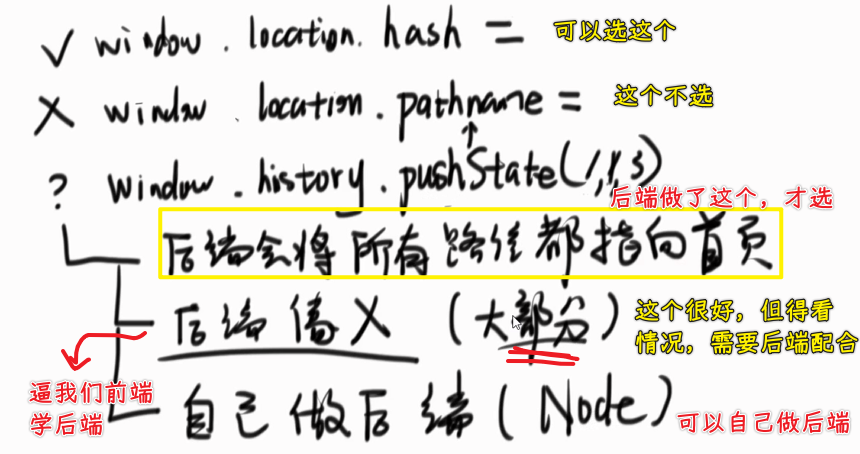 ✓ window.location.hash = 可以选这个
X window.location.pathname = 这个不选
? window.history.pushState(1,1,3)
后端做了这个，才选
后端会将所有路径都指向首页
后端傻X (大部分)
这个很好，但得看
情况，需要后端配合
逼我们前端
学后端
自己做后端 (Node)
可以自己做后端